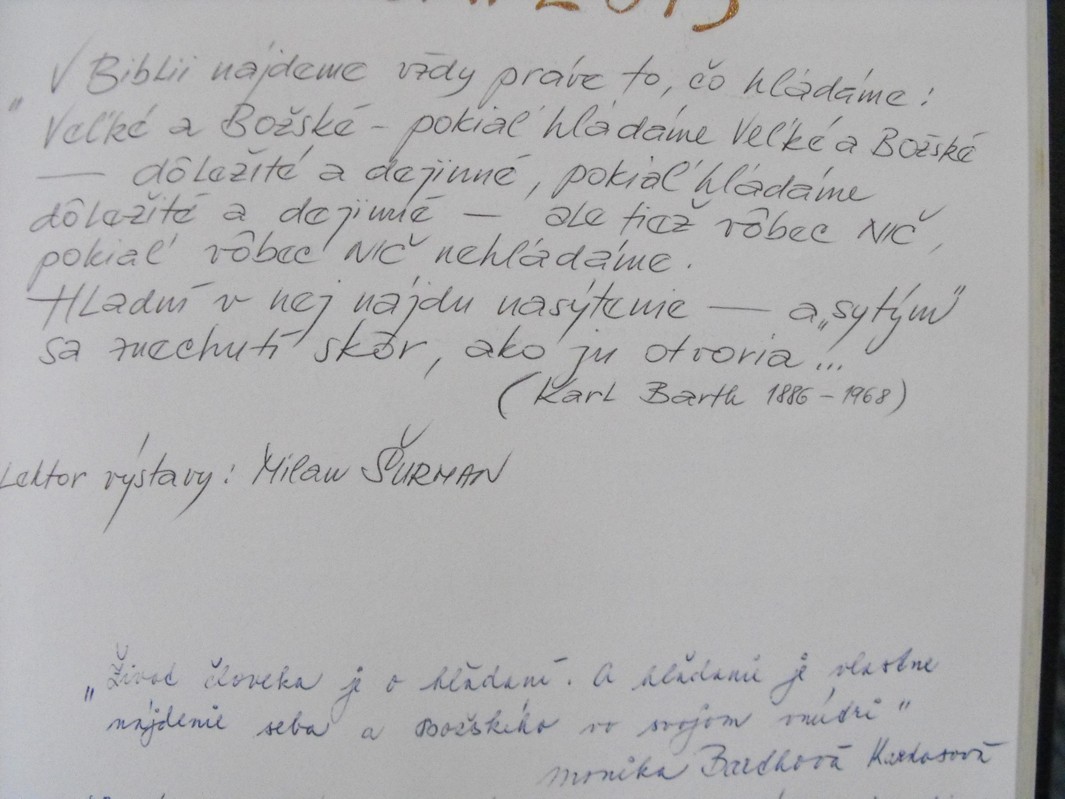 2013
„V Biblii nájdeme vždy práve to, čo hľadáme:
Veľké a Božské – pokiaľ hľadáme Veľké a Božské
— dôležité a dejinné, pokiaľ hľadáme
dôležité a dejinné — ale tiež vôbec NIČ,
pokiaľ vôbec NIČ nehľadáme.
Hladní v nej nájdu nasýtenie — a „sytým"
sa znechutí skôr, ako ju otvoria...
(Karl Barth 1886 – 1968)
Lektor výstavy: Milan ŠURMAN
„Život človeka je o hľadaní. A hľadanie je vlastne
nájdenie seba a Božského vo svojom vnútri"
Monika Bardhová